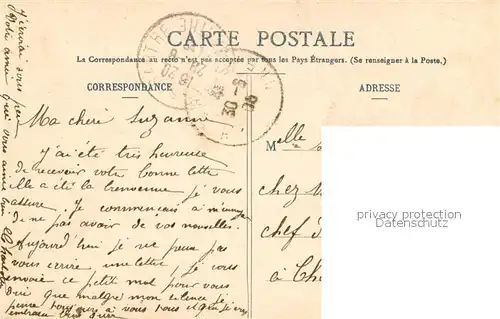 CARTE POSTALE
La Correspondance au recto n'est pas acceptée par tous les Pays Étrangers. (Se renseigner à la Poste.)
CORRESPONDANCE
ADRESSE
Ma cheri Suzanne
J'ai été très heureuse
de recevoir votre bonne lettre
elle a été la bienvenue je vous
assure. Je commençais à
de ne pas avoir de vos nouvelles.
Aujourd hui je ne peux pas
vous ecrire une lettre, je vous
envoie ce petit mot pour vous
dire que malgré mon silence je
pense toujours à vous tous et que je
embrasse bien
J'écrirai sous peu
Votre amie qui vous aime bien
Melle
chez
chef
à
privacy protection
Datenschutz